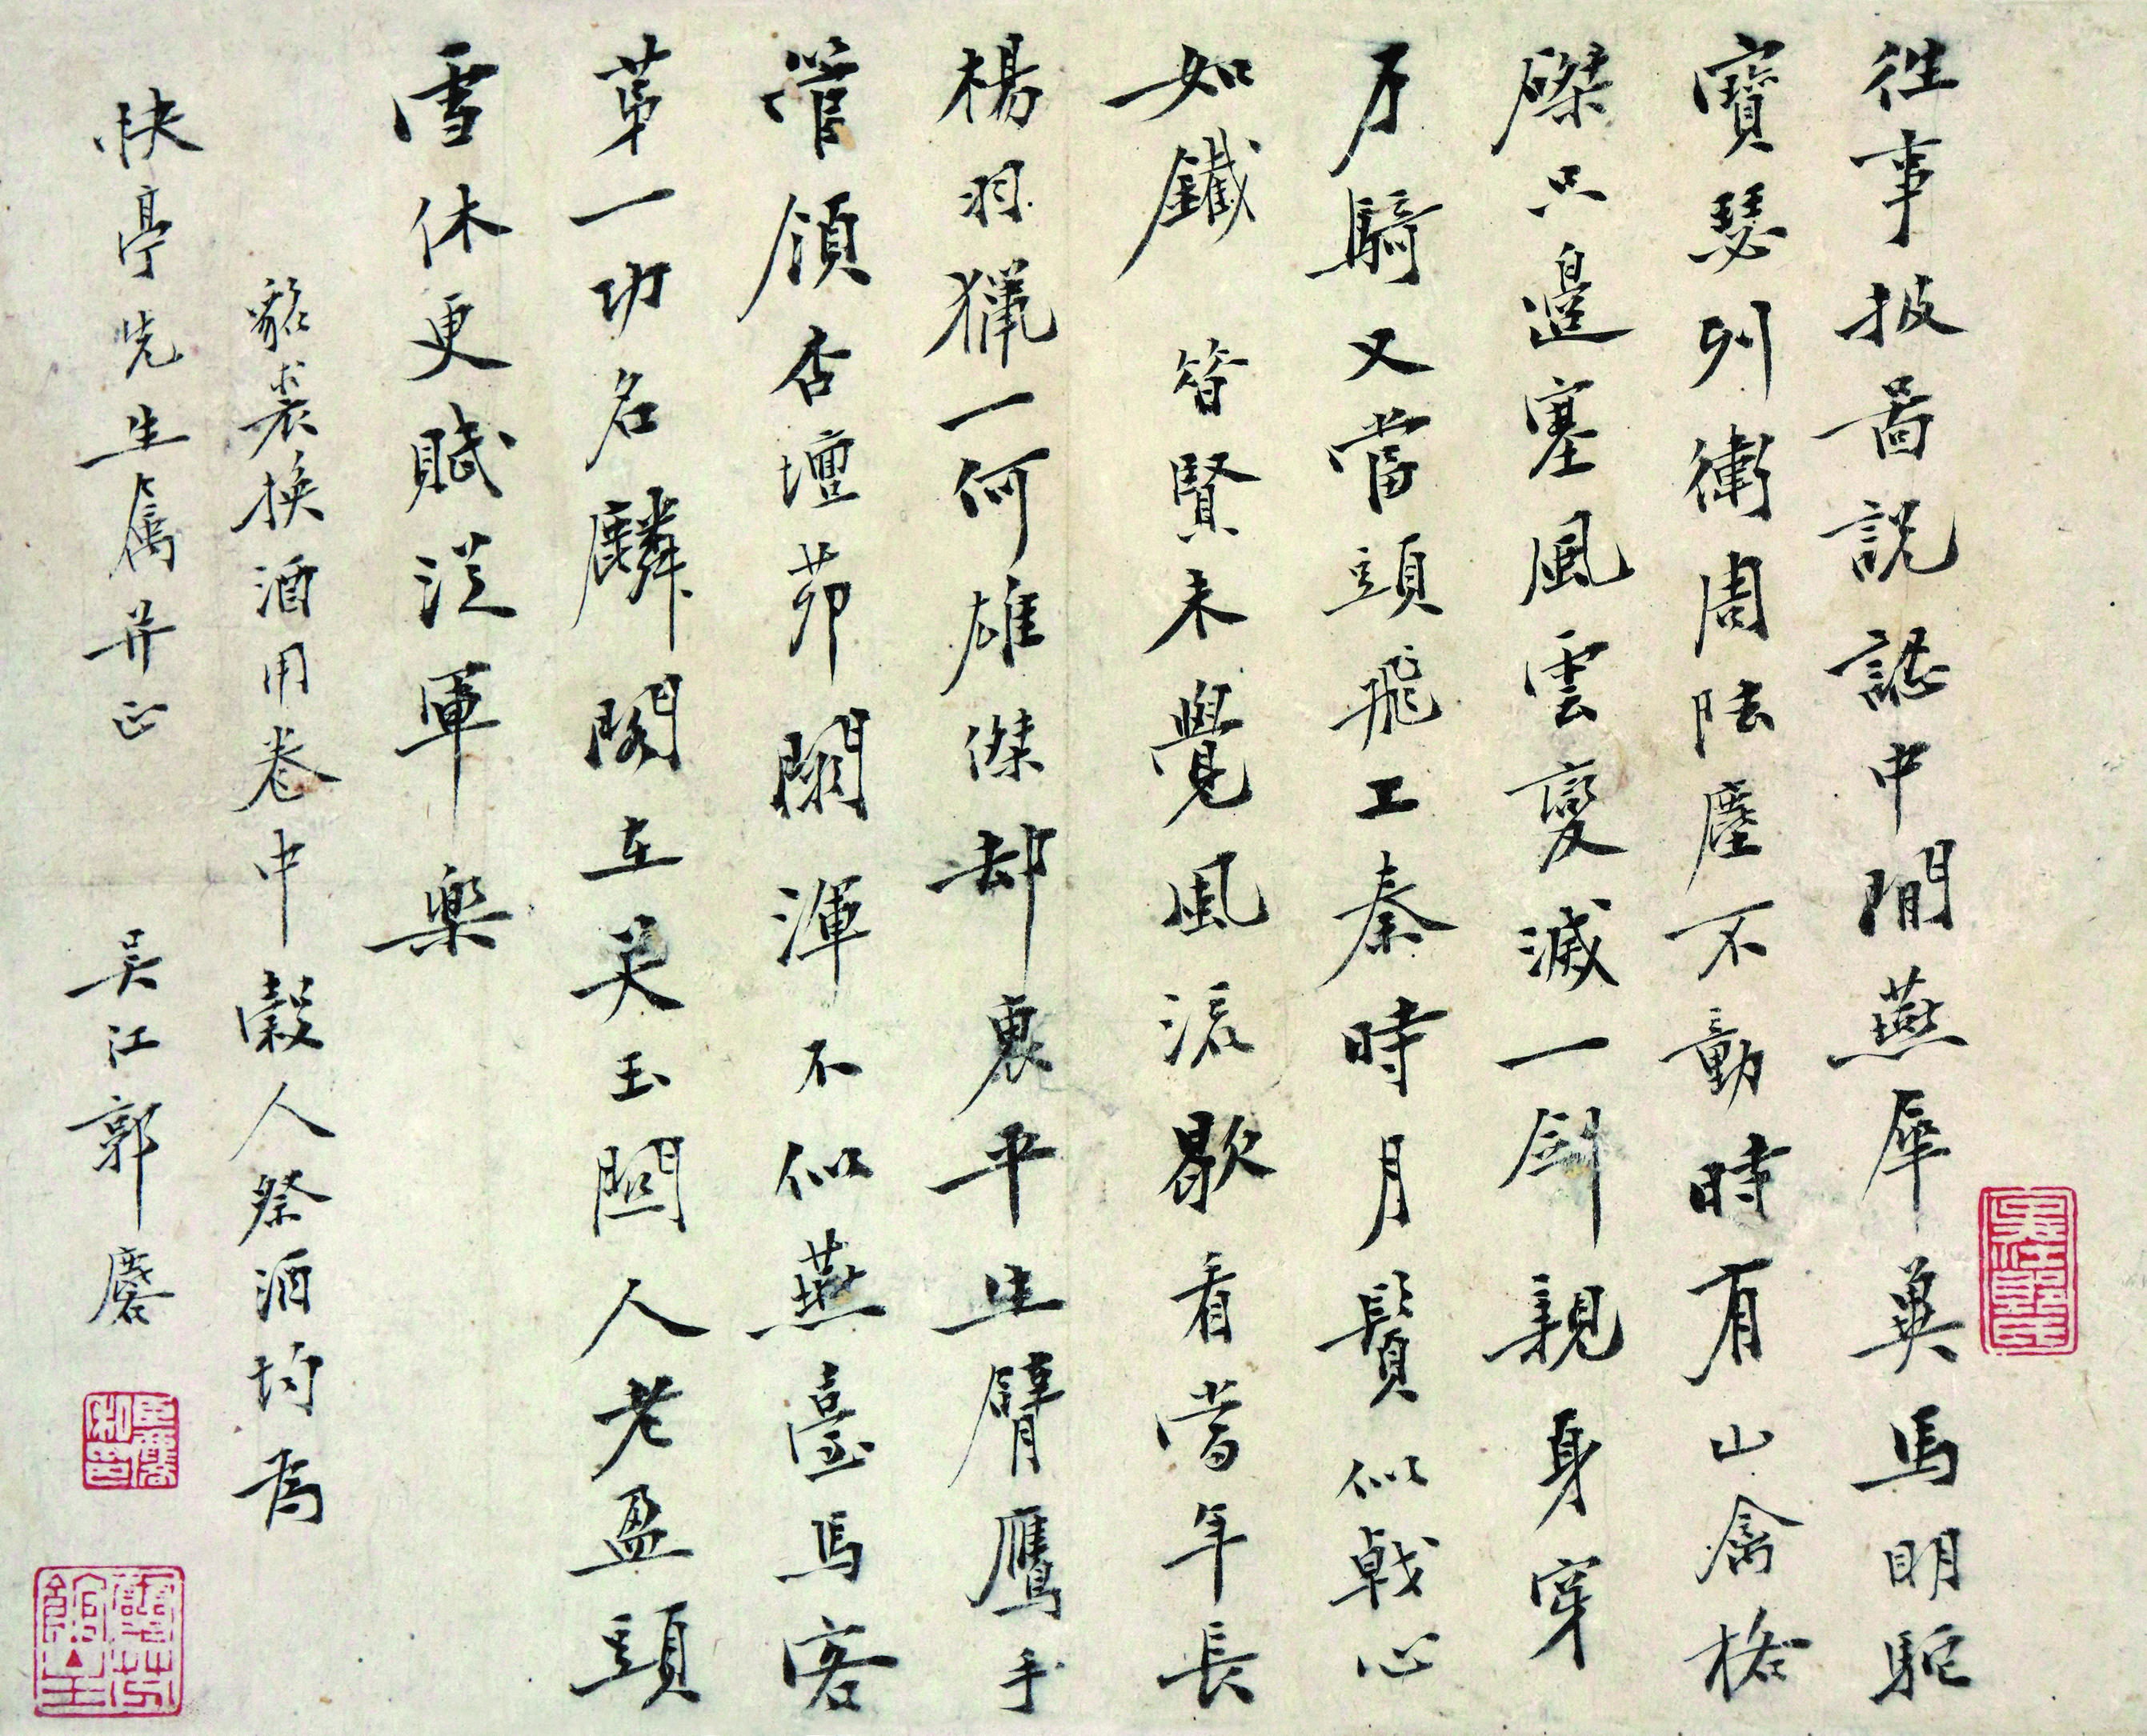 往事披啚説認中閒燕犀兾馬明駝
寶瑟列衛周阹塵不動時有山禽格
磔只邊塞風雲變滅一劍親身穿
月騎又當頭飛上秦時月鬢似戟心
如鐵 昝賢未覺風流歇看當年長
楊羽獵一何雄傑却裏平生臂鷹手
管領杏壇茆閣渾不似燕臺馬客
苐一功名麟閣在笑玉關人老盈頭
雪休更賦從軍樂
貂裘換酒用卷中穀人祭酒均為
快亭先生属并正 吳江郭麐